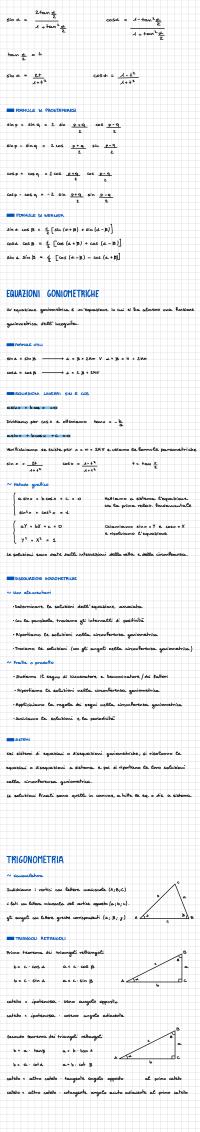 sin α = 2 tan α/2 / 1 + tan² α/2    cos α = 1 - tan² α/2 / 1 + tan² α/2
tan α/2 = t
sin α = 2t / 1+t²    cos α = 1-t² / 1+t²
FORMULE DI PROSTAFERESI
sin p + sin q = 2 sin p+q/2 cos p-q/2
sin p - sin q = 2 cos p+q/2 sin p-q/2
cos p + cos q = 2 cos p+q/2 cos p-q/2
cos p - cos q = -2 sin p+q/2 sin p-q/2
FORMULE DI WERNER
sin α cos β = 1/2 [sin (α+β) + sin (α-β)]
cos α cos β = 1/2 [cos (α+β) + cos (α-β)]
sin α sin β = 1/2 [cos (α-β) - cos (α+β)]
EQUAZIONI GONIOMETRICHE
Un'equazione goniometrica è un'equazione in cui si ha almeno una funzione
goniometrica dell'incognita.
FORMULE UTILI
EQUAZIONI LINEARI SIN E COS
a sin x + b cos x = 0
Dividiamo per cos x e otteniamo tan x = - b/a
a sin x + b cos x + c = 0
sin x = 2t / 1+t²    cos x = 1-t² / 1+t²    t = tan x/2
~ Metodo grafico
a sin x + b cos x + c = 0
sin²x + cos²x = 1
Mettiamo a sistema l'equazione
con la prima relaz. fondamentale
aY + bX + c = 0
Y² + X² = 1
Chiamiamo sin x = Y e cos x = X
e risolviamo l'equazione
Le soluzioni sono date dalle intersezioni della retta e della circonferenza.
DISEQUAZIONI GONIOMETRICHE
~ Non elementari
- Determinare le soluzioni dell'equazione associata
- Con la parabola troviamo gli intervalli di positività
- Riportiamo le soluzioni nella circonferenza goniometrica
- Troviamo le soluzioni (con gli angoli nella circonferenza goniometrica)
~ Fratte o prodotto
- Studiamo il segno di numeratore e denominatore / dei fattori
- Riportiamo le soluzioni nella circonferenza goniometrica
- Applichiamo la regola dei segni nella circonferenza goniometrica
- Scriviamo le soluzioni e la periodicità
SISTEMI
Nei sistemi di equazioni o disequazioni goniometriche, si risolvono le
equazioni o disequazioni a sistema e poi si riportano le loro soluzioni
nella circonferenza goniometrica.
TRIGONOMETRIA
~ Nomenclatura
Indichiamo i vertici con lettere maiuscole (A; B; C)
i lati con lettere minuscole del vertice opposto (a; b; c).
gli angoli con lettere greche corrispondenti (α; β; γ)
TRIANGOLI RETTANGOLI
Primo teorema dei triangoli rettangoli
b = c · cos α    a = c · cos β
b = c · sin β    a = c · sin α
cateto = ipotenusa · seno angolo opposto
cateto = ipotenusa · coseno angolo adiacente
Secondo teorema dei triangoli rettangoli
b = a · tan β    a = b · tan α
b = a · cot α    a = b · cot β
cateto = altro cateto · tangente angolo opposto al primo cateto
cateto = altro cateto · cotangente angolo acuto adiacente al primo cateto